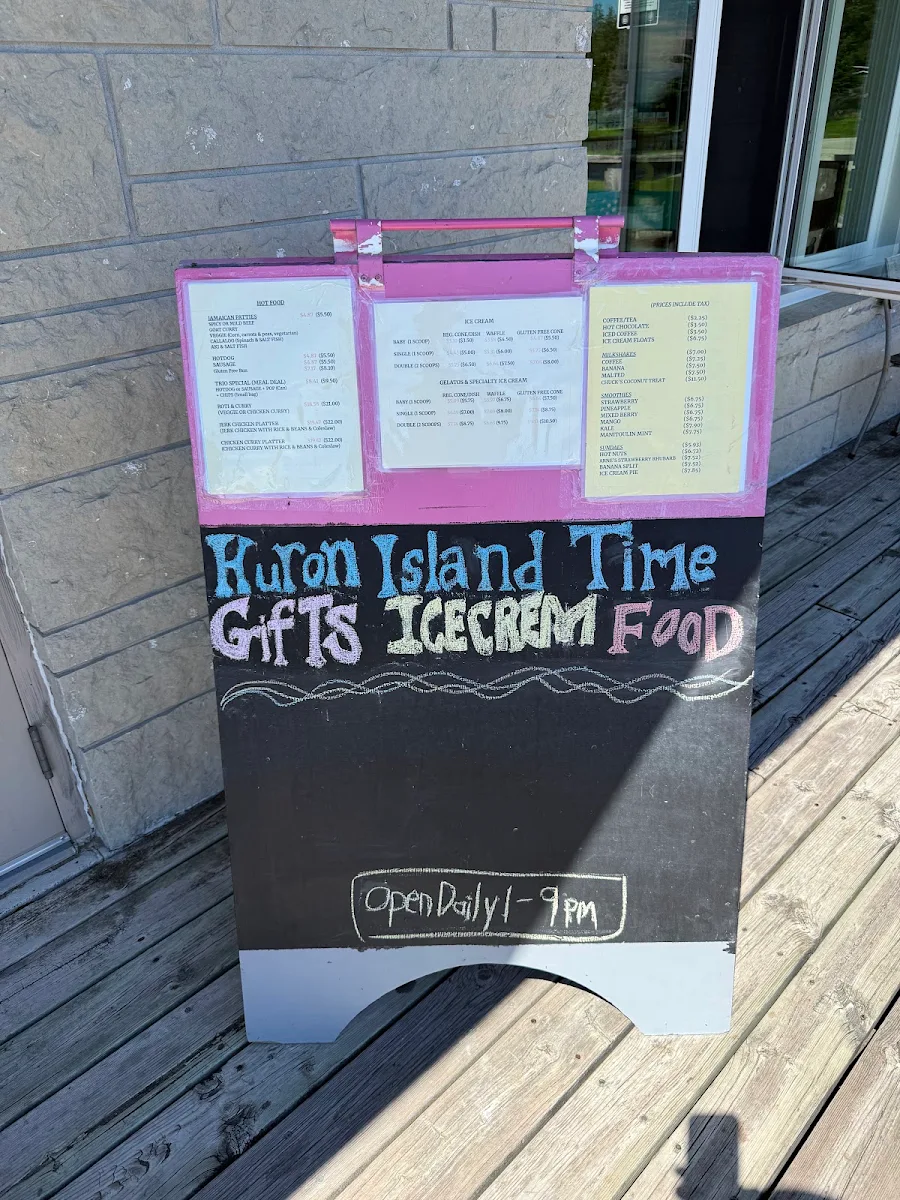 HOT FOOD
JAMAICAN PATTIES ($5.50)
SPICY OR MILD BEEF
GOAT CURRY
VEGGIE (Corn, carrots & peas, vegetarian)
CALLALOO (Spinach & SALT FISH)
AKI & SALT FISH
HOTDOG ($5.50)
SAUSAGE ($5.50)
Gluten Free Bun
TRIO SPECIAL (MEAL DEAL) ($9.50)
HOTDOG or SAUSAGE + POP (Can)
+ CHIPS (Small bag)
ROTI & CURRY ($21.00)
(VEGGIE OR CHICKEN CURRY)
JERK CHICKEN PLATTER ($22.00)
(JERK CHICKEN WITH RICE & BEANS & Coleslaw)
CHICKEN CURRY PLATTER ($22.00)
(CHICKEN CURRY WITH RICE & BEANS & Coleslaw)
ICE CREAM
REG. CONE/DISH WAFFLE GLUTEN FREE CONE
BABY (1 SCOOP) ($3.50) ($4.50) ($5.50)
SINGLE (1 SCOOP) ($5.00) ($6.00) ($6.50)
DOUBLE (2 SCOOPS) ($6.50) ($7.50) ($8.00)
GELATOS & SPECIALTY ICE CREAM
REG. CONE/DISH WAFFLE GLUTEN FREE CONE
BABY (1 SCOOP) ($5.75) ($6.75)
SINGLE (1 SCOOP) ($7.00) ($8.00) ($8.75)
DOUBLE (2 SCOOPS) ($10.50)
(PRICES INCLUDE TAX)
COFFEE/TEA ($2.25)
HOT CHOCOLATE ($3.50)
ICED COFFEE ($3.50)
ICE CREAM FLOATS ($6.75)
MILKSHAKES ($7.00)
COFFEE ($7.25)
BANANA ($7.50)
MALTED ($7.50)
CHUCK'S COCONUT TREAT ($11.50)
SMOOTHIES
STRAWBERRY ($6.75)
PINEAPPLE ($6.75)
MIXED BERRY ($6.75)
MANGO ($6.75)
KALE ($7.90)
MANITOULIN MINT ($7.75)
SUNDAES ($5.92)
HOT NUTS ($6.72)
($7.52)
BANANA SPLIT ($7.52)
ICE CREAM PIE ($7.85)
Huron Island Time
GifTs ICECREM FOOD
Open Daily 1-9pm